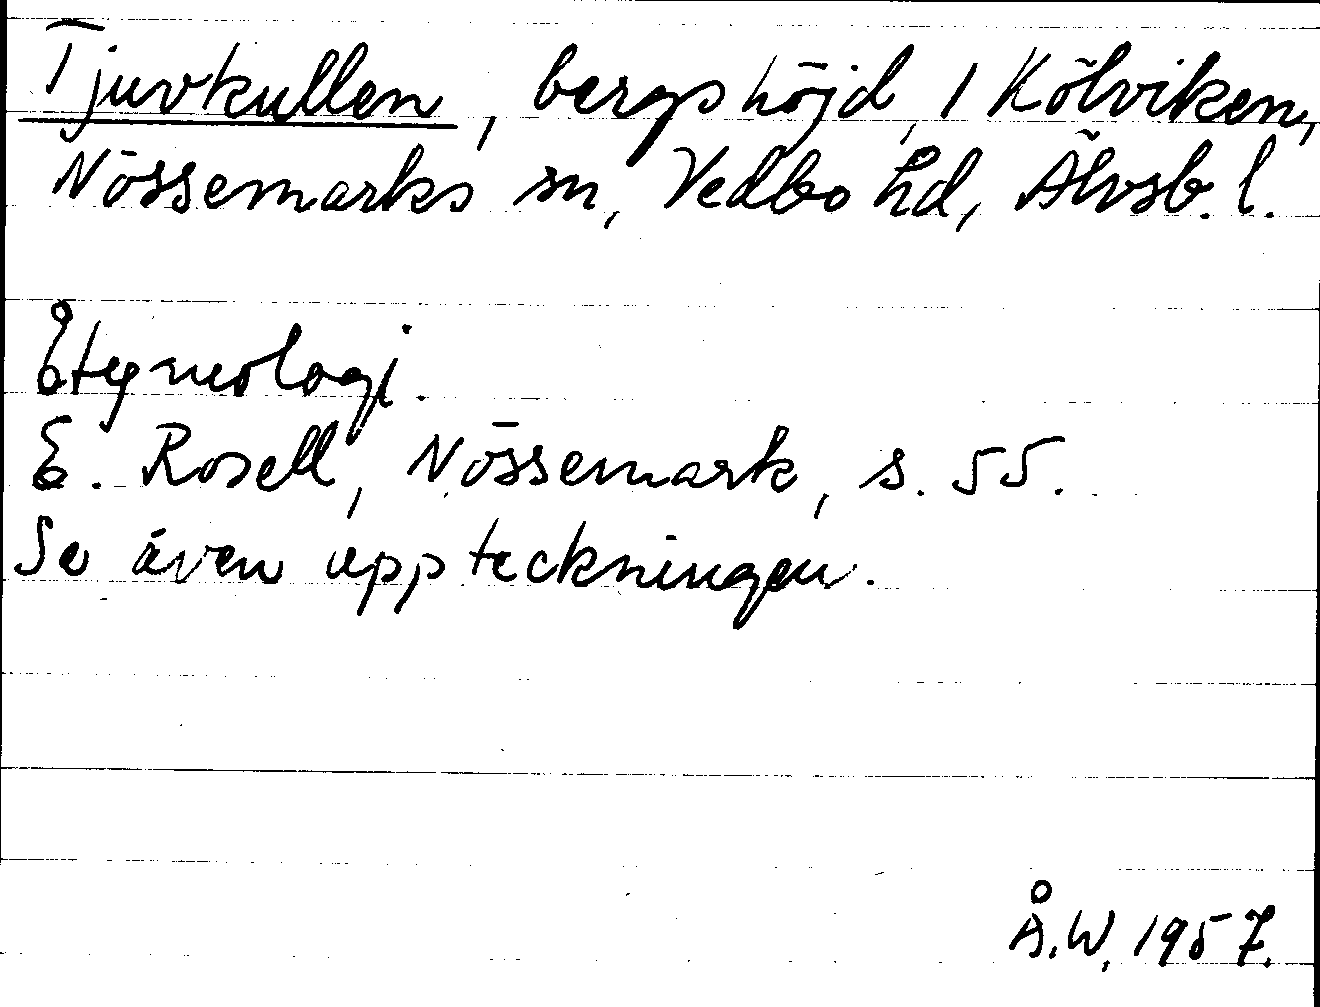 Tjuvkullen, bergshöjd, 1 Kölviken,
Nössemarks sn, Vedbo hd, Älvsb. l.
Etymologi.
E. Rosell, Nössemark, s. 55.
Se även uppteckningen.
Å.W. 1957.